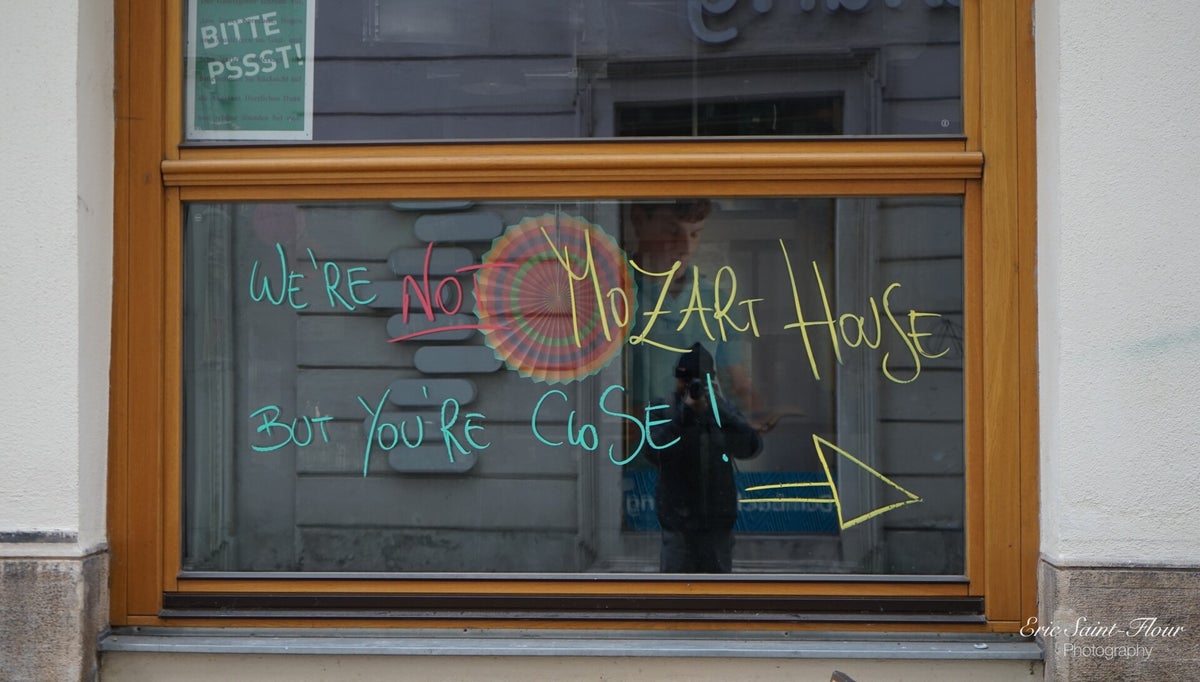 BITTE
PSSST!
WE'RE NOT MOZART HOUSE
BUT YOU'RE CLOSE!
Eric Saint-Flour
Photography